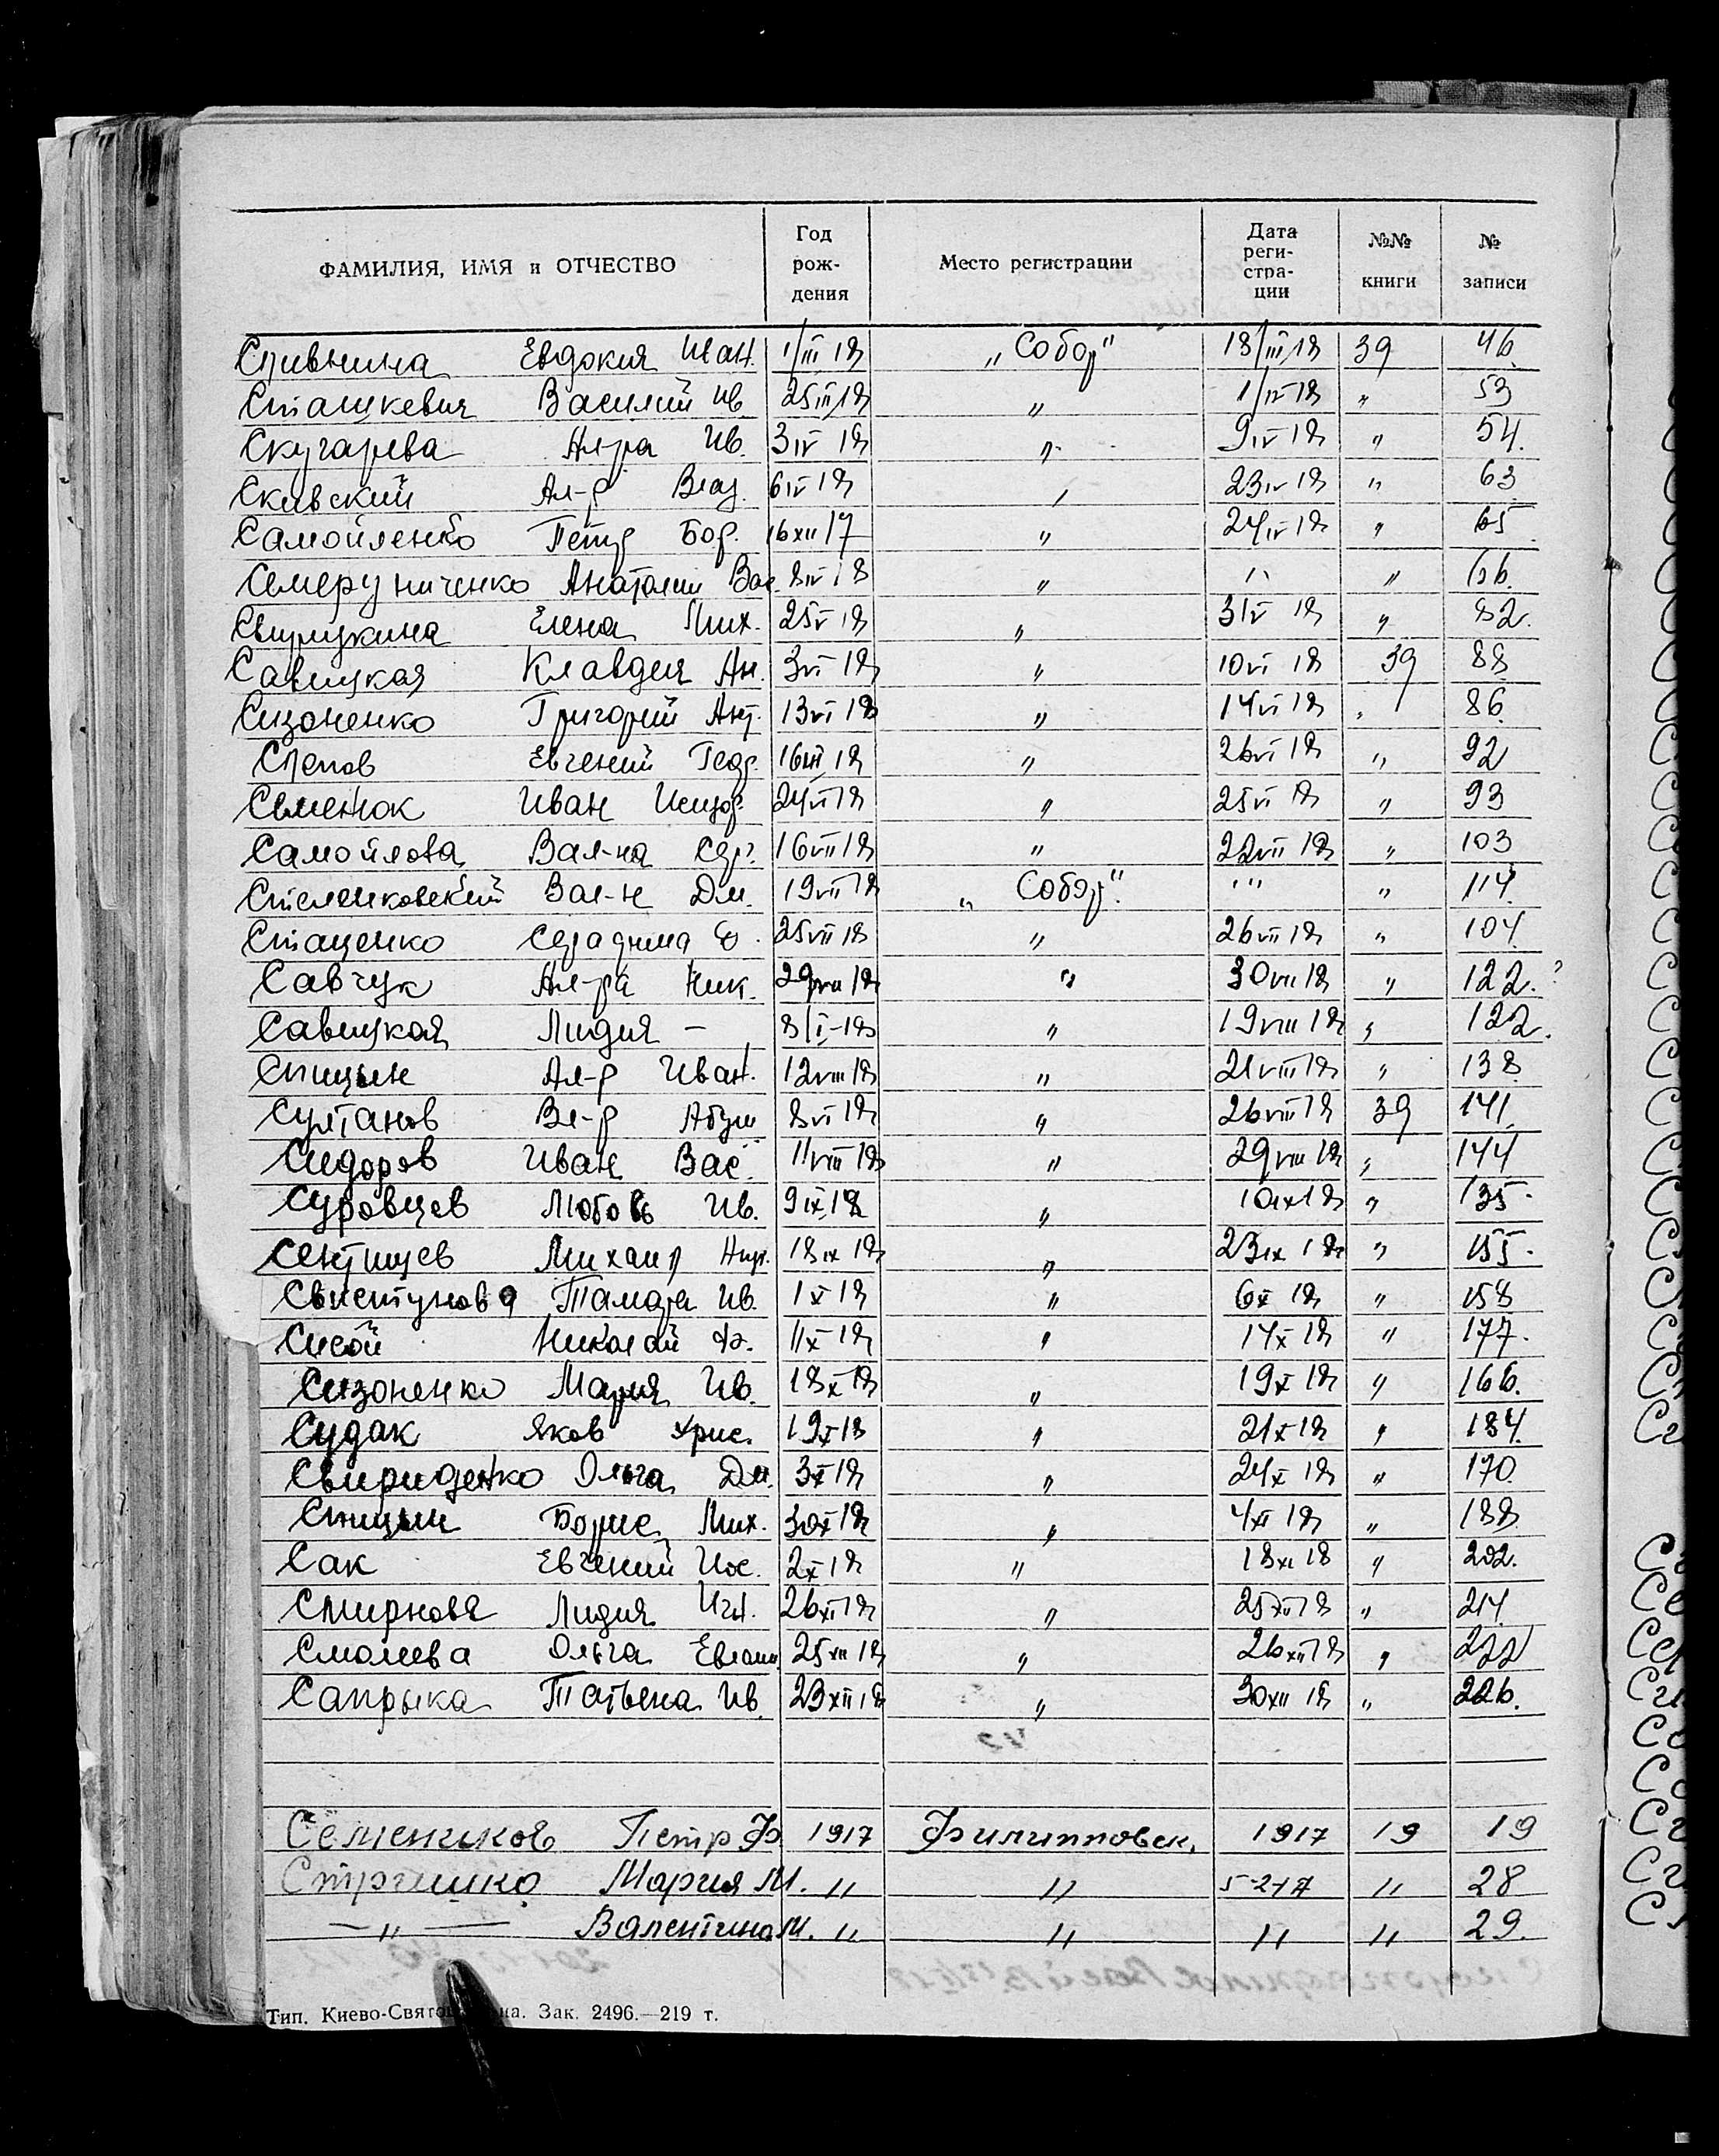 ФАМИЛИЯ, ИМЯ и ОТЧЕСТВО Год рож- дения Место регистрации Дата реги- стра- ции №№ книги № записи
Спивнина Евдокия Иван. 1/III 18 „Собор" 18/III 18 39 46
Сташкевич Василий Ив. 25III 18 „ 1/IV 18 „ 53
Скугарева Ал-ра Ив. 3IV 18 „ 9IV 18 „ 54.
Скивский Ал-р Влад. 6IV 18 „ 23IV 18 „ 63
Самойленко Петр Бор. 16XII 17 „ 24IV 18 „ 65
Семеруниченко Анатолий Вас. 8IV 18 „ „ „ 66.
Елена Мих. 25V 18 „ 31V 18 „ 82.
Савицкая Клавдия Ан. 3VI 18 „ 10VI 18 39 88
Сизоненко Григорий Ант. 13VI 18 „ 14VI 18 „ 86
Слепов Евгений Геор. 16III 18 „ 26VI 18 „ 92
Семенюк Иван Исидор. 24VI 18 „ 25VI 18 „ 93
Самойлова Вал-на Сер. 16VII 18 „ 22VII 18 „ 103
Стеленковский Вал-н Дм. 19VII 18 „Собор" „ „ 114.
Стаценко Серафима Ф. 25VII 18 „ 26VII 18 „ 104.
Савчук Ал-ра Ник. 29VII 18 „ 30VII 18 „ 122.?
Савицкая Лидия – 8/I-18 „ 19VIII 18 „ 122.
Спицын Ал-р Иван. 12VIII 18 „ 21VIII 18 „ 138
Султанов Вл-р 8VI 18 „ 26VIII 18 39 141.
Сидоров Иван Вас. 11VIII 18 „ 29VIII 18 „ 144
Суровцев Любовь Ив. 9IX 18 „ 10IX 18 „ 135.
Сентищев Михаил 18IX 18 „ 23IX 18 „ 155.
Свистунова Тамара Ив. 1X 18 „ 6X 18 „ 158
Сисой Николай Ф. 11X 18 „ 14X 18 „ 177.
Сизоненко Мария Ив. 18X 18 „ 19X 18 „ 166.
Судак Яков Хрис. 19X 18 „ 21X 18 „ 184.
Свириденко Ольга Дм. 3X 18 „ 24X 18 „ 170
Спицын Борис Мих. 30X 18 „ 4XI 18 „ 188
Сак Евгений Иос. 2X 18 „ 18XI 18 „ 202.
Смирнова Лидия Игн. 26XI 18 „ 25XII 18 „ 214
Смолева Ольга Евлами. 25XII 18 „ 26XII 18 „ 222
Сапрыка Татьена Ив. 23XII 18 „ 30XII 18 „ 226.
Семеников Петр Ф 1917 Филипповск. 1917 19 19
Мария М. „ „ 5-2-17 „ 28
—„— Валентина М. „ „ „ „ 29.
Тип. Киево-Свято на. Зак. 2496.—219 т.